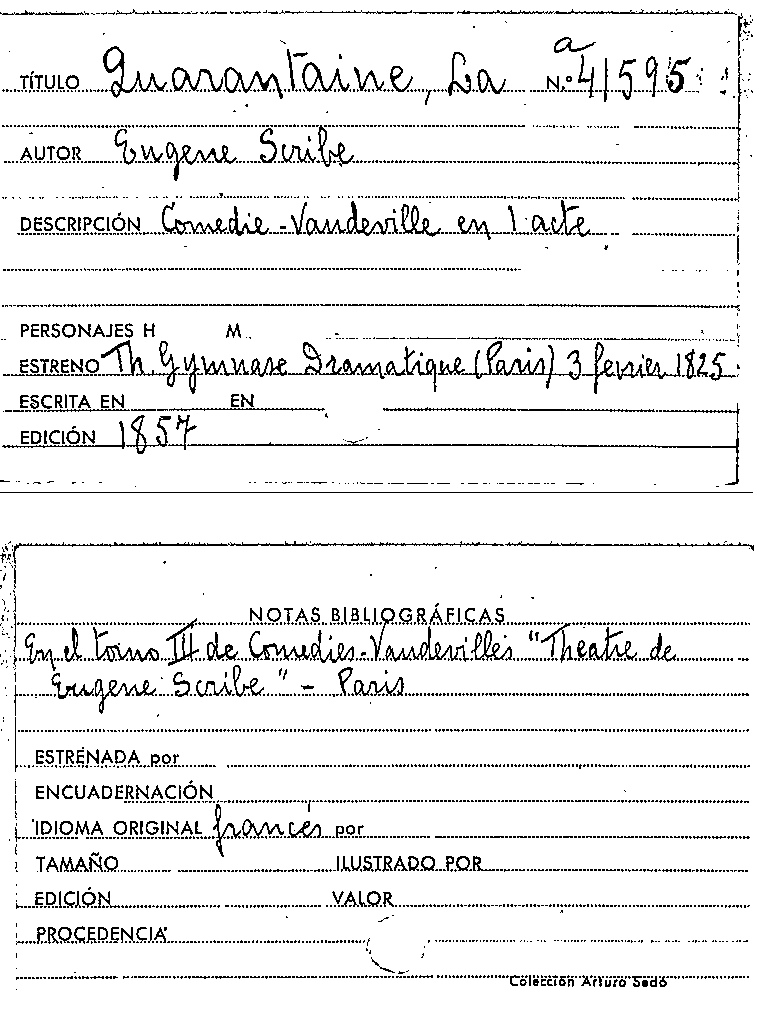 TÍTULO Quarantaine, La N.º 41595
a
AUTOR Eugene Scribe
DESCRIPCIÓN Comedie-Vaudeville en 1 acte
PERSONAJES H M.
ESTRENO Th. Gymnase Dramatique (Paris) 3 fevrier 1825
ESCRITA EN EN
EDICIÓN 1857
NOTAS BIBLIOGRÁFICAS
En el tomo III de Comedies-Vaudevilles "Theatre de
Eugene Scribe" - Paris
ESTRENADA por
ENCUADERNACIÓN
IDIOMA ORIGINAL francés por
TAMAÑO ILUSTRADO POR
EDICIÓN VALOR
PROCEDENCIA
Colección Arturo Sedó